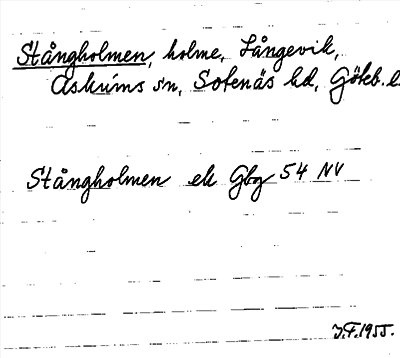 Stångholmen, holme, Långevik,
Askums sn, Sotenäs hd, Göteb. l.
Stångholmen ek Gbg 54 NV
J.F. 1955.